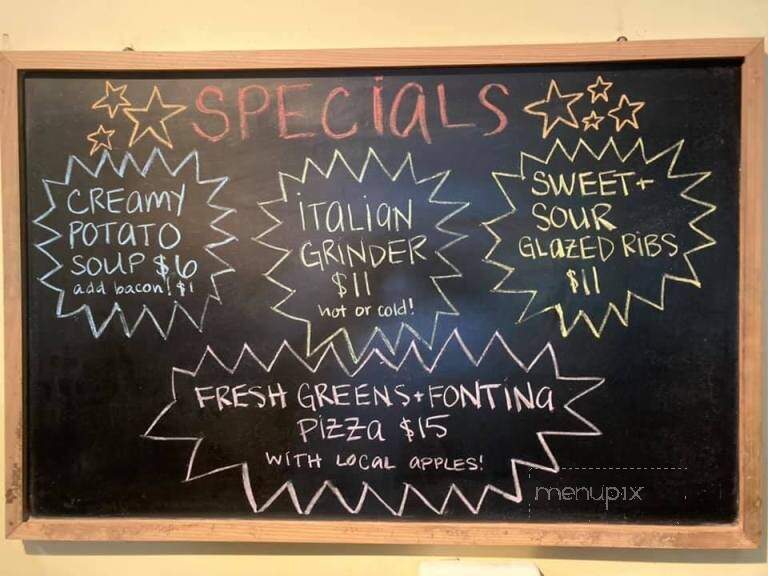 SPECiaLS
CREamY
POTATO
SOUP $6
add bacon! $1
iTALiaN
GRINDER
$11
hot or cold!
SWEET+
SOUR
GLaZED RiBS
$11
FRESH GREENS+FONTiNa
PiZZa $15
WiTH LOCAL APPLES!
menupix